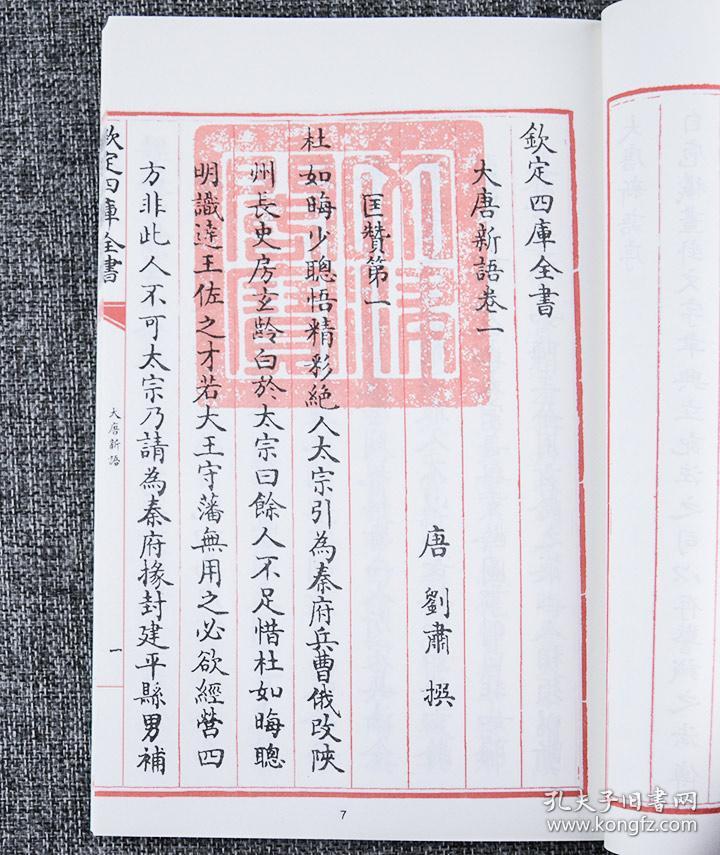 欽定四庫全書
大唐新語卷一
唐 劉肅 撰
匡贊第一
杜如晦少聰悟精彩絶人太宗引為秦府兵曹俄改陝
州長史房玄齡白於太宗曰餘人不足惜杜如晦聰
明識達王佐之才若大王守藩無用之必欲經營四
方非此人不可太宗乃請為秦府掾封建平縣男補
欽定四庫全書
大唐新語
一
7
孔夫子旧书网
www.kongfz.com